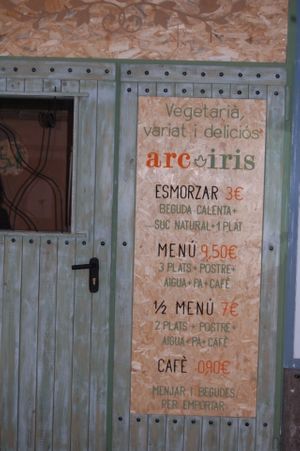 Vegetarià,
variat i deliciós
arc iris
ESMORZAR 3€
BEGUDA CALENTA+
SUC NATURAL+1 PLAT
MENÚ 9,50€
3 PLATS + POSTRE+
AIGUA+PA+CAFÈ
½ MENÚ 7€
2 PLATS + POSTRE+
AIGUA+PA+CAFÈ
CAFÈ 0,90€
MENJAR I BEGUDES
PER EMPORTAR